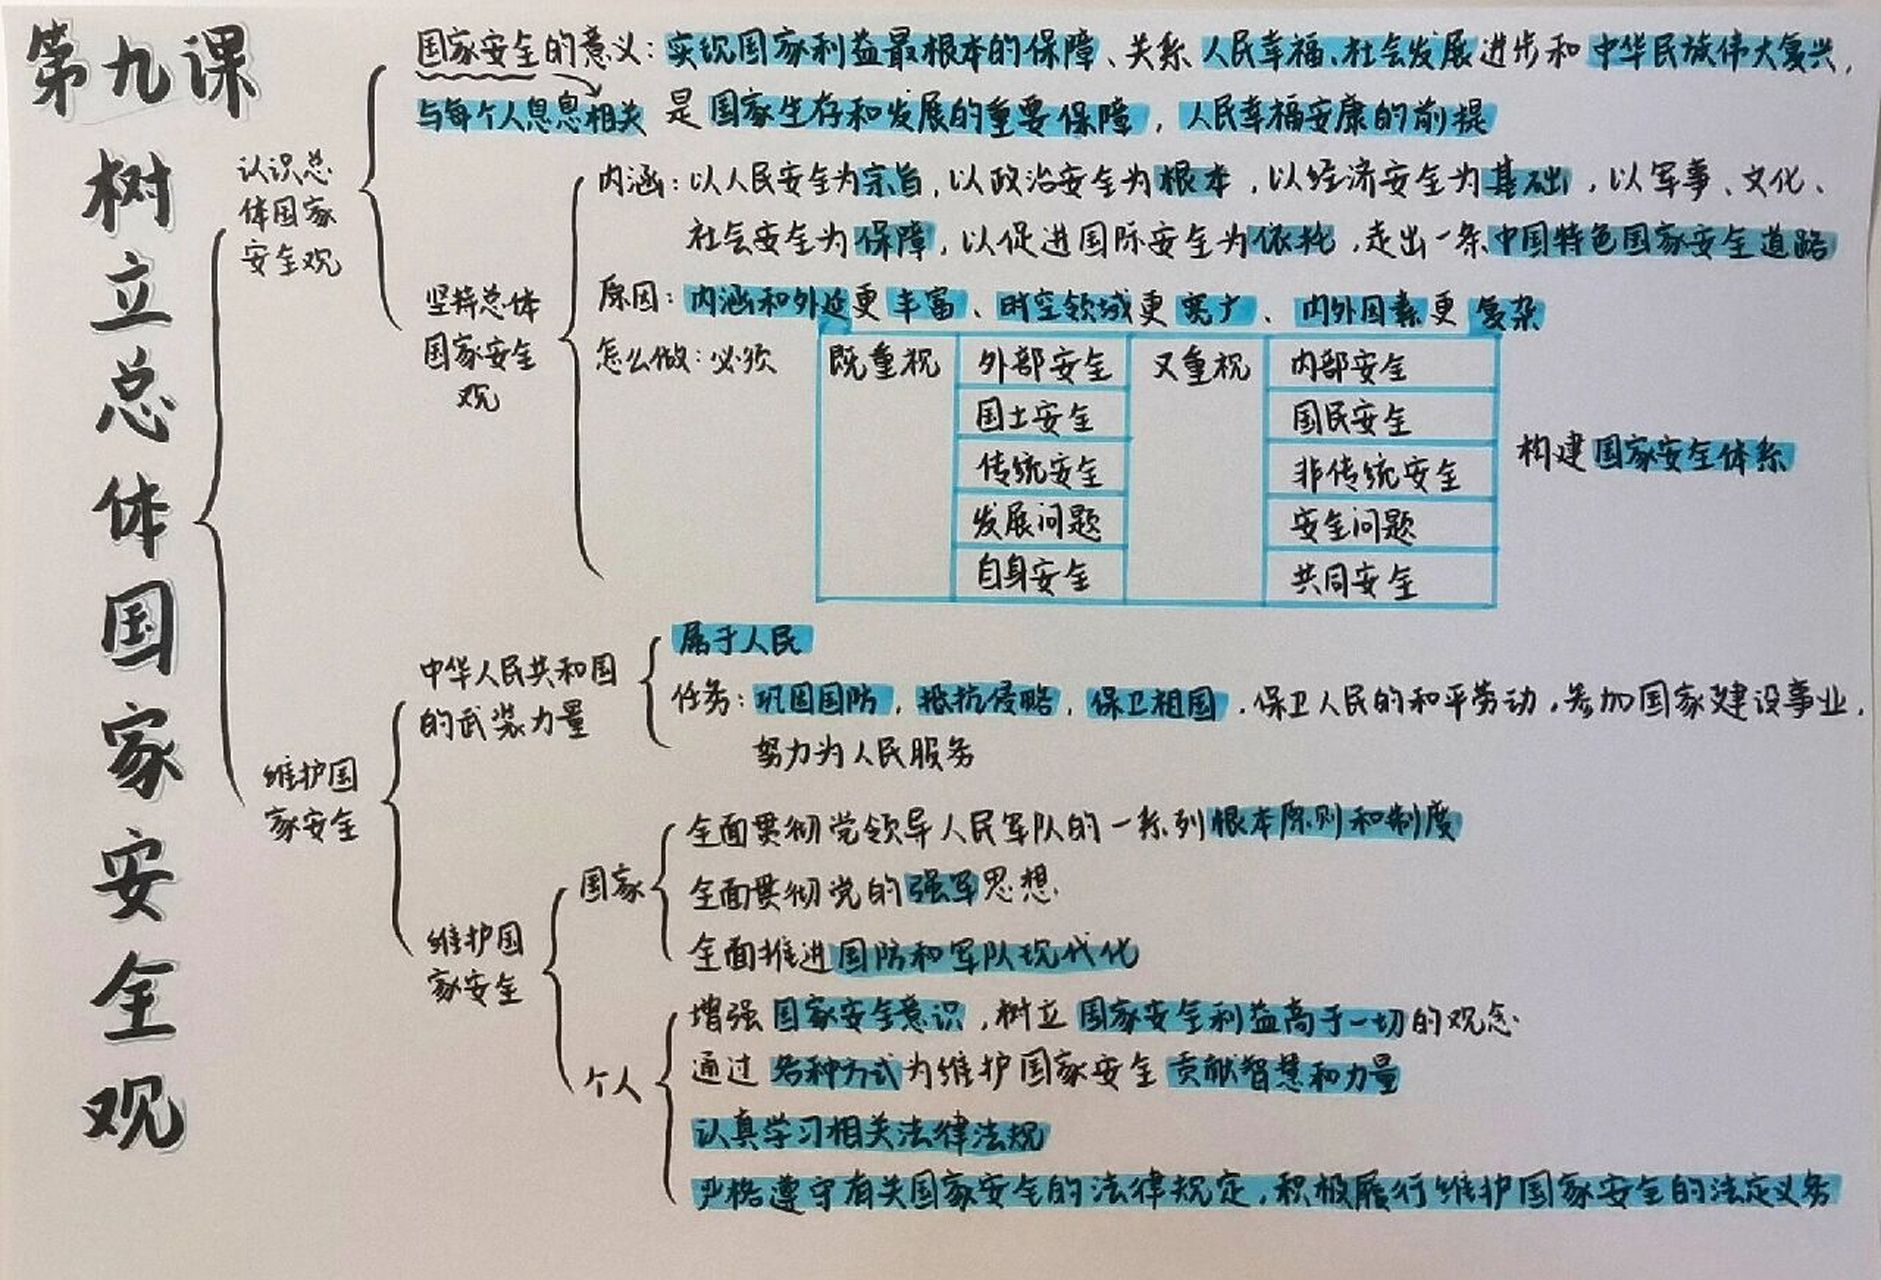 第九课
树立总体国家安全观
认识总
体国家
安全观
国家安全的意义：实现国家利益最根本的保障、关系 人民幸福、社会发展进步和中华民族伟大复兴，
与每个人息息相关 是国家生存和发展的重要保障，人民幸福安康的前提
坚持总体
国家安全
观
内涵：以人民安全为宗旨，以政治安全为根本，以经济安全为基础，以军事、文化、
社会安全为保障，以促进国际安全为依托，走出一条中国特色国家安全道路
原因：内涵和外延更丰富、时空领域更宽广、内外因素更复杂
怎么做：必须
既重视 外部安全 又重视 内部安全
国土安全 国民安全
传统安全 非传统安全
发展问题 安全问题
自身安全 共同安全
构建国家安全体系
维护国
家安全
中华人民共和国
的武装力量
属于人民
任务：巩固国防，抵抗侵略，保卫祖国，保卫人民的和平劳动，参加国家建设事业，
努力为人民服务
维护国
家安全
国家
全面贯彻党领导人民军队的一系列根本原则和制度
全面贯彻党的强军思想
全面推进国防和军队现代化
个人
增强国家安全意识，树立国家安全利益高于一切的观念
通过各种方式为维护国家安全贡献智慧和力量
认真学习相关法律法规
严格遵守有关国家安全的法律规定，积极履行维护国家安全的法定义务